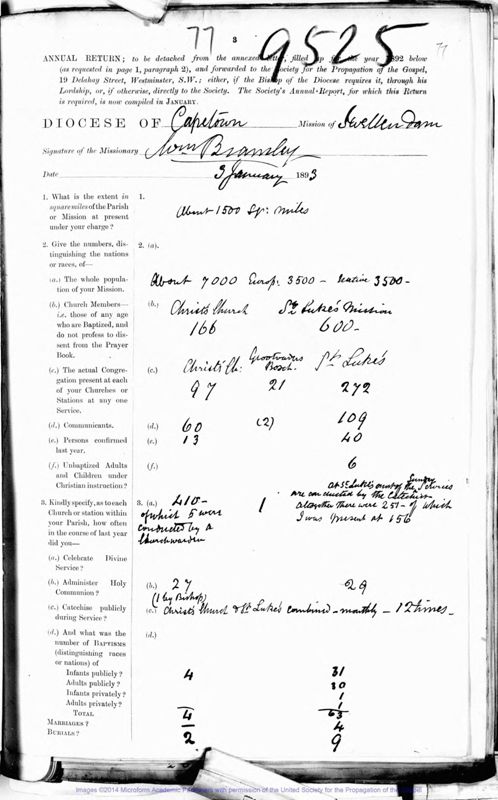 77
3
9525
77
ANNUAL RETURN; to be detached from the annexed letter, filled up for the year 1892 below
(as requested in page 1, paragraph 2), and forwarded to the Society for the Propagation of the Gospel,
19 Delahay Street, Westminster, S.W.; either, if the Bishop of the Diocese requires it, through his
Lordship, or, if otherwise, directly to the Society. The Society's Annual Report, for which this Return
is required, is now compiled in JANUARY.
DIOCESE OF Capetown Mission of Swellendam
Signature of the Missionary Wm Bramley
Date 3 January 1893
1. What is the extent in
square miles of the Parish
or Mission at present
under your charge?
1.
About 1500 Sqr: miles
2. Give the numbers, dis-
tinguishing the nations
or races, of—
2. (a).
(a.) The whole popula-
tion of your Mission.
About 7000 Europ: 3500 – native 3500 –
(b.) Church Members—
i.e. those of any age
who are Baptized, and
do not profess to dis-
sent from the Prayer
Book.
(b.) Christ's Church St Luke's Mission
166 600 –
(c.) The actual Congre-
gation present at each
of your Churches or
Stations at any one
Service.
(c.) Christ's Ch: Grootvaders Bosch. St Luke's
97 21 272
(d.) Communicants.
(d.) 60 (2) 109
(e.) Persons confirmed
last year.
(e.) 13 40
(f.) Unbaptized Adults
and Children under
Christian instruction?
(f.) 6
3. Kindly specify, as to each
Church or station within
your Parish, how often
in the course of last year
did you—
3. (a.) 410 –
of which 5 were
conducted by a
Churchwarden
1
At St Luke's most of the Sunday Services
are conducted by the Catechist
altogether there were 251 – of which
I was present at 156
(a.) Celebrate Divine
Service?
(b.) Administer Holy
Communion?
(b.) 27 29
(1 by Bishop)
(c.) Catechise publicly
during Service?
(c.) Christ's Church & St Luke's combined – monthly – 12 times –
(d.) And what was the
number of BAPTISMS
(distinguishing races
or nations) of
(d.)
Infants publicly? 4 31
Adults publicly? 30
Infants privately? 1
Adults privately? 1
TOTAL 4 63
MARRIAGES? 4
BURIALS? 2 9
Images ©2014 Microform Academic Publishers with permission of the United Society for the Propagation of the Gospel